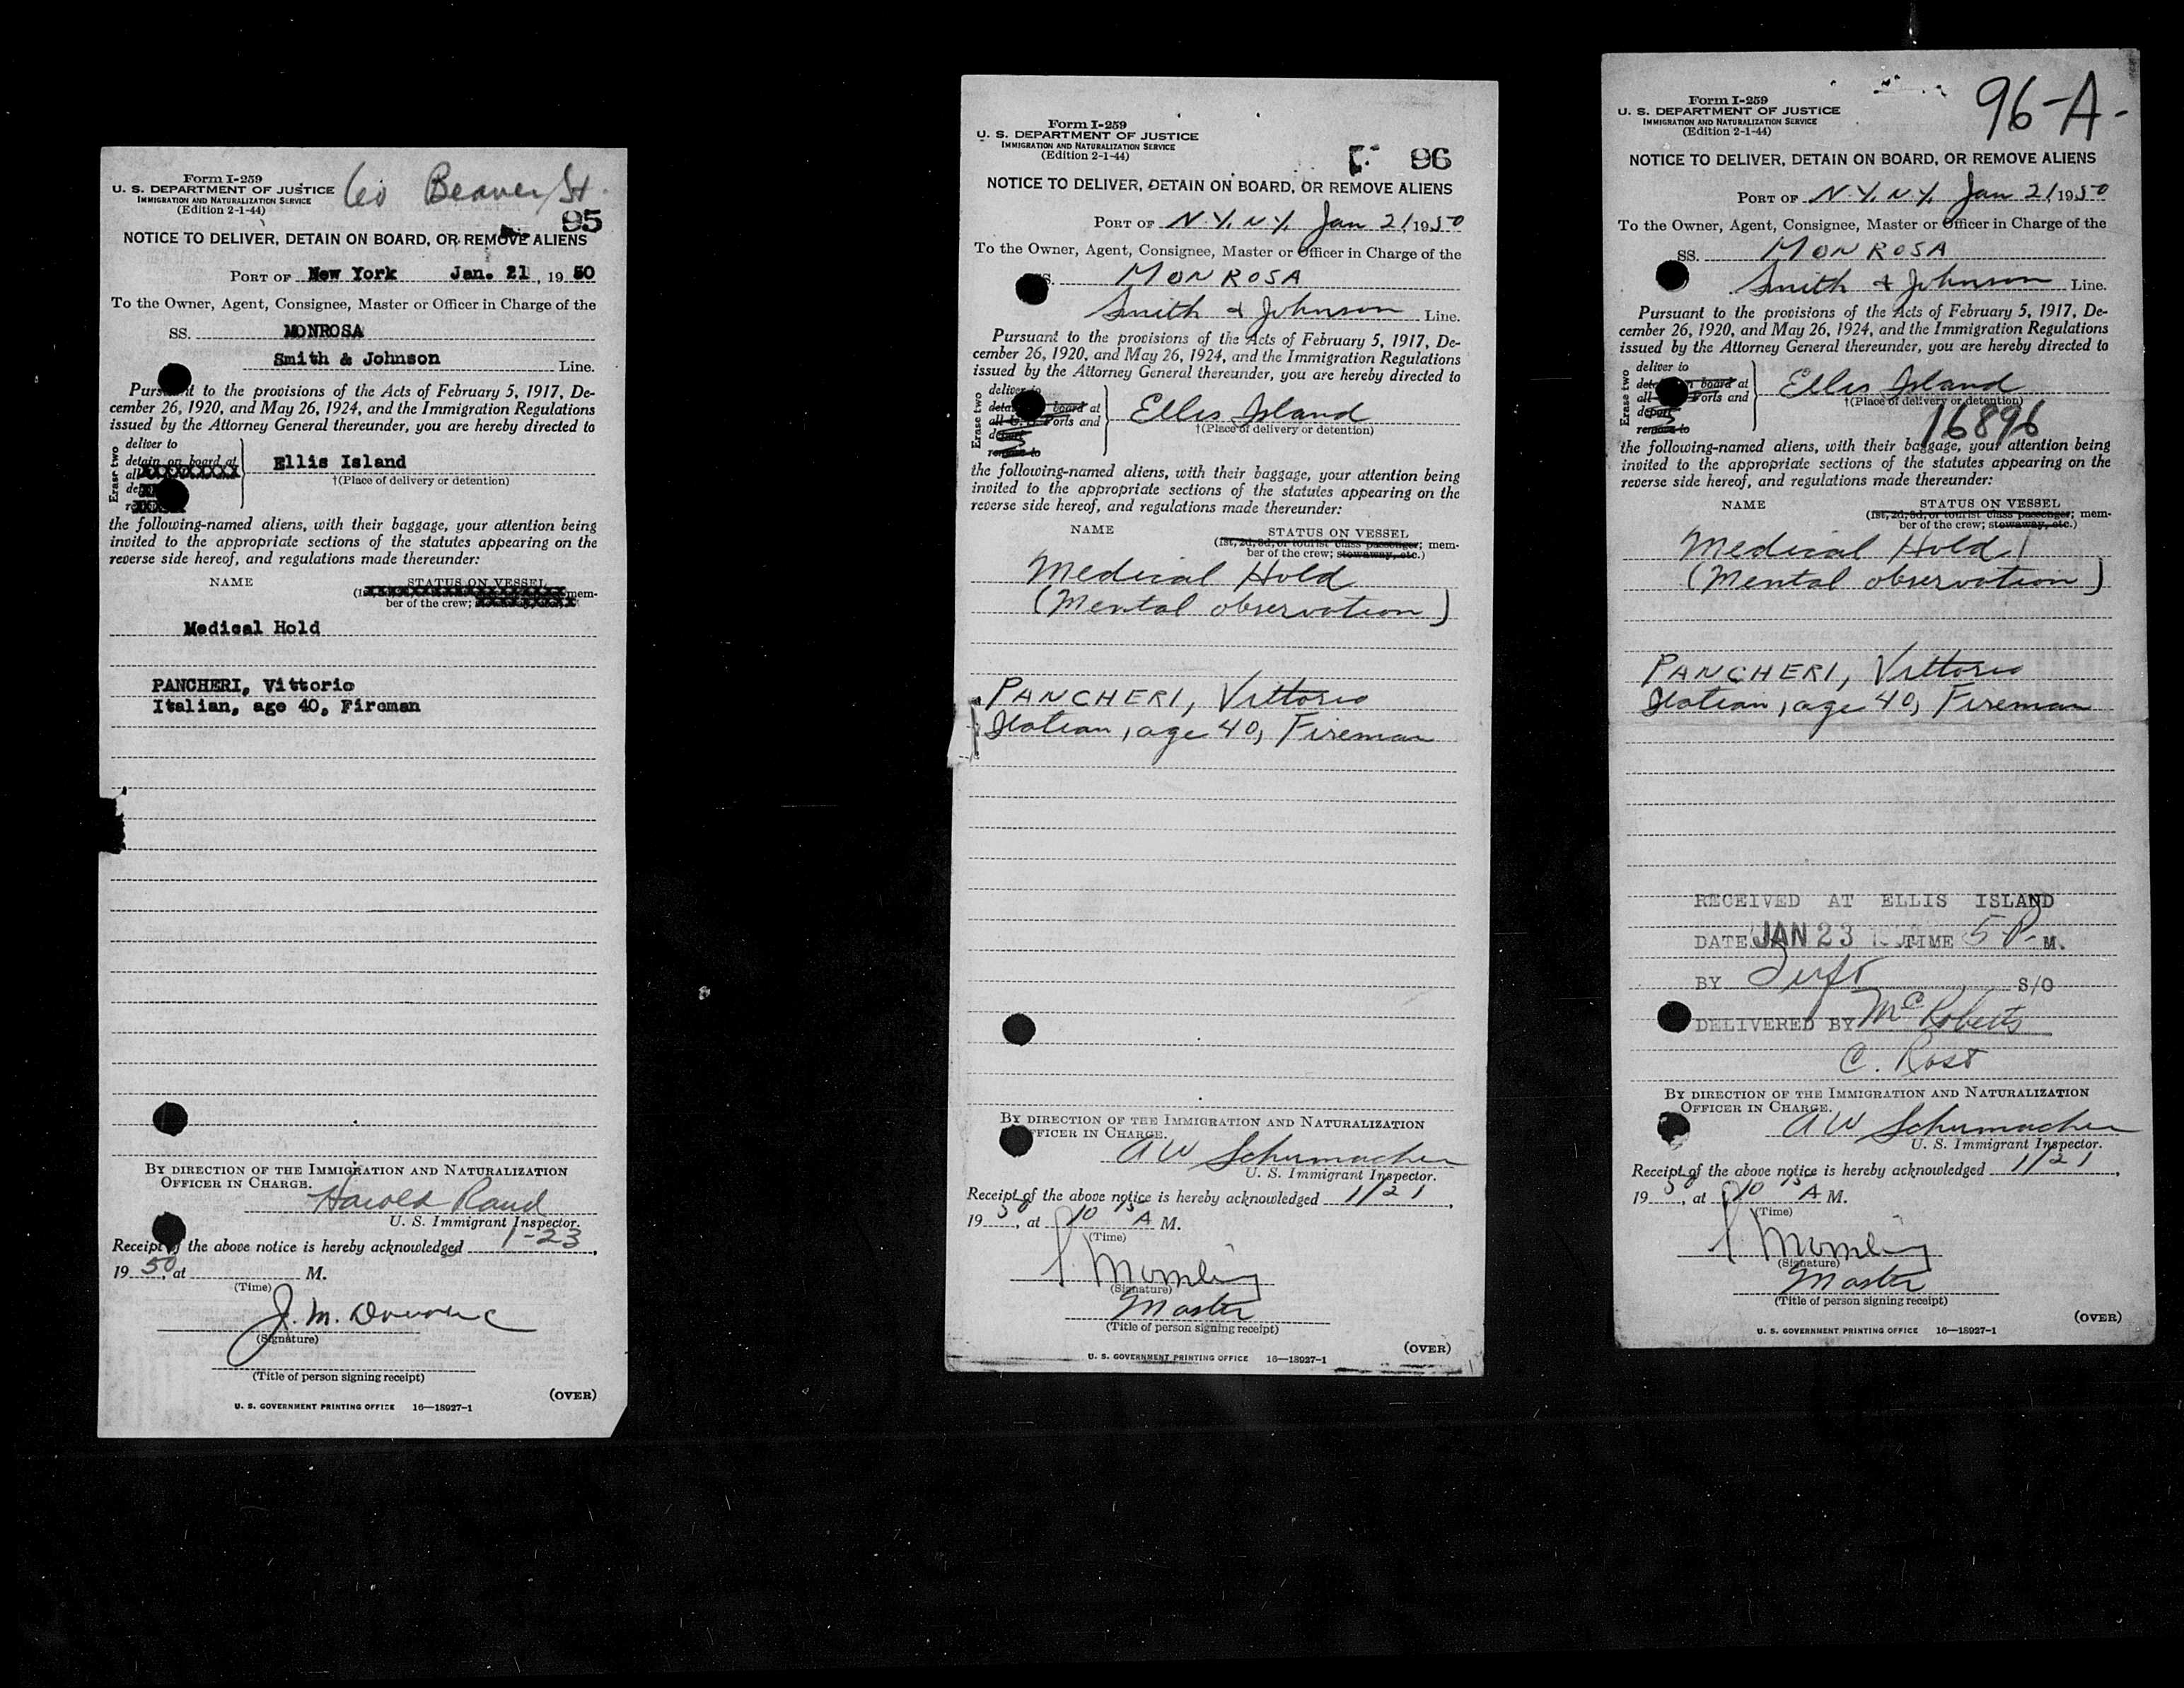 Form I-259
U. S. DEPARTMENT OF JUSTICE
IMMIGRATION AND NATURALIZATION SERVICE
(Edition 2-1-44)
60 Beaver St.
95
NOTICE TO DELIVER, DETAIN ON BOARD, OR REMOVE ALIENS
PORT OF New York Jan. 21, 1950
To the Owner, Agent, Consignee, Master or Officer in Charge of the
SS. MONROSA
Smith & Johnson Line.
Pursuant to the provisions of the Acts of February 5, 1917, De-
cember 26, 1920, and May 26, 1924, and the Immigration Regulations
issued by the Attorney General thereunder, you are hereby directed to
Erase two
deliver to
detain on board at
Ellis Island
†(Place of delivery or detention)
the following-named aliens, with their baggage, your attention being
invited to the appropriate sections of the statutes appearing on the
reverse side hereof, and regulations made thereunder:
NAME STATUS ON VESSEL
mem-
ber of the crew;
Medical Hold
PANCHERI, Vittorio
Italian, age 40, Fireman
BY DIRECTION OF THE IMMIGRATION AND NATURALIZATION
OFFICER IN CHARGE.
Harold Rand
U. S. Immigrant Inspector.
Receipt of the above notice is hereby acknowledged 1-23,
1950, at M.
(Time)
J. M.
(Signature)
(Title of person signing receipt)
(OVER)
U. S. GOVERNMENT PRINTING OFFICE 16—18927-1
Form I-259
U. S. DEPARTMENT OF JUSTICE
IMMIGRATION AND NATURALIZATION SERVICE
(Edition 2-1-44)
96
NOTICE TO DELIVER, DETAIN ON BOARD, OR REMOVE ALIENS
PORT OF N.Y. N.Y. Jan 21 1950
To the Owner, Agent, Consignee, Master or Officer in Charge of the
SS. MONROSA
Smith & Johnson Line.
Pursuant to the provisions of the Acts of February 5, 1917, De-
cember 26, 1920, and May 26, 1924, and the Immigration Regulations
issued by the Attorney General thereunder, you are hereby directed to
Erase two
deliver to
detain on board at
all U. S. Ports and
deport
remove to
Ellis Island
†(Place of delivery or detention)
the following-named aliens, with their baggage, your attention being
invited to the appropriate sections of the statutes appearing on the
reverse side hereof, and regulations made thereunder:
NAME STATUS ON VESSEL
(1st, 2d, 3d, or tourist class passenger; mem-
ber of the crew; stowaway, etc.)
Medical Hold
(Mental observation)
PANCHERI, Vittorio
Italian, age 40, Fireman
BY DIRECTION OF THE IMMIGRATION AND NATURALIZATION
OFFICER IN CHARGE.
A W Schumacher
U. S. Immigrant Inspector.
Receipt of the above notice is hereby acknowledged 1/21,
1950, at 10 15 A M.
(Time)
(Signature)
Master
(Title of person signing receipt)
(OVER)
U. S. GOVERNMENT PRINTING OFFICE 16—18927-1
Form I-259
U. S. DEPARTMENT OF JUSTICE
IMMIGRATION AND NATURALIZATION SERVICE
(Edition 2-1-44)
96-A-
NOTICE TO DELIVER, DETAIN ON BOARD, OR REMOVE ALIENS
PORT OF N.Y. N.Y. Jan 21 1950
To the Owner, Agent, Consignee, Master or Officer in Charge of the
SS. MONROSA
Smith & Johnson Line.
Pursuant to the provisions of the Acts of February 5, 1917, De-
cember 26, 1920, and May 26, 1924, and the Immigration Regulations
issued by the Attorney General thereunder, you are hereby directed to
Erase two
deliver to
detain on board at
all U. S. Ports and
deport
remove to
Ellis Island
†(Place of delivery or detention)
16896
the following-named aliens, with their baggage, your attention being
invited to the appropriate sections of the statutes appearing on the
reverse side hereof, and regulations made thereunder:
NAME STATUS ON VESSEL
(1st, 2d, 3d, or tourist class passenger; mem-
ber of the crew; stowaway, etc.)
Medical Hold
(Mental observation)
PANCHERI, Vittorio
Italian, age 40, Fireman
RECEIVED AT ELLIS ISLAND
DATE JAN 23 TIME 5 P. M.
BY S/O
DELIVERED BY McRoberts
C. Rost
BY DIRECTION OF THE IMMIGRATION AND NATURALIZATION
OFFICER IN CHARGE.
A W Schumacher
U. S. Immigrant Inspector.
Receipt of the above notice is hereby acknowledged 1/21,
1950, at 10 15 A M.
(Time)
(Signature)
Master
(Title of person signing receipt)
(OVER)
U. S. GOVERNMENT PRINTING OFFICE 16—18927-1